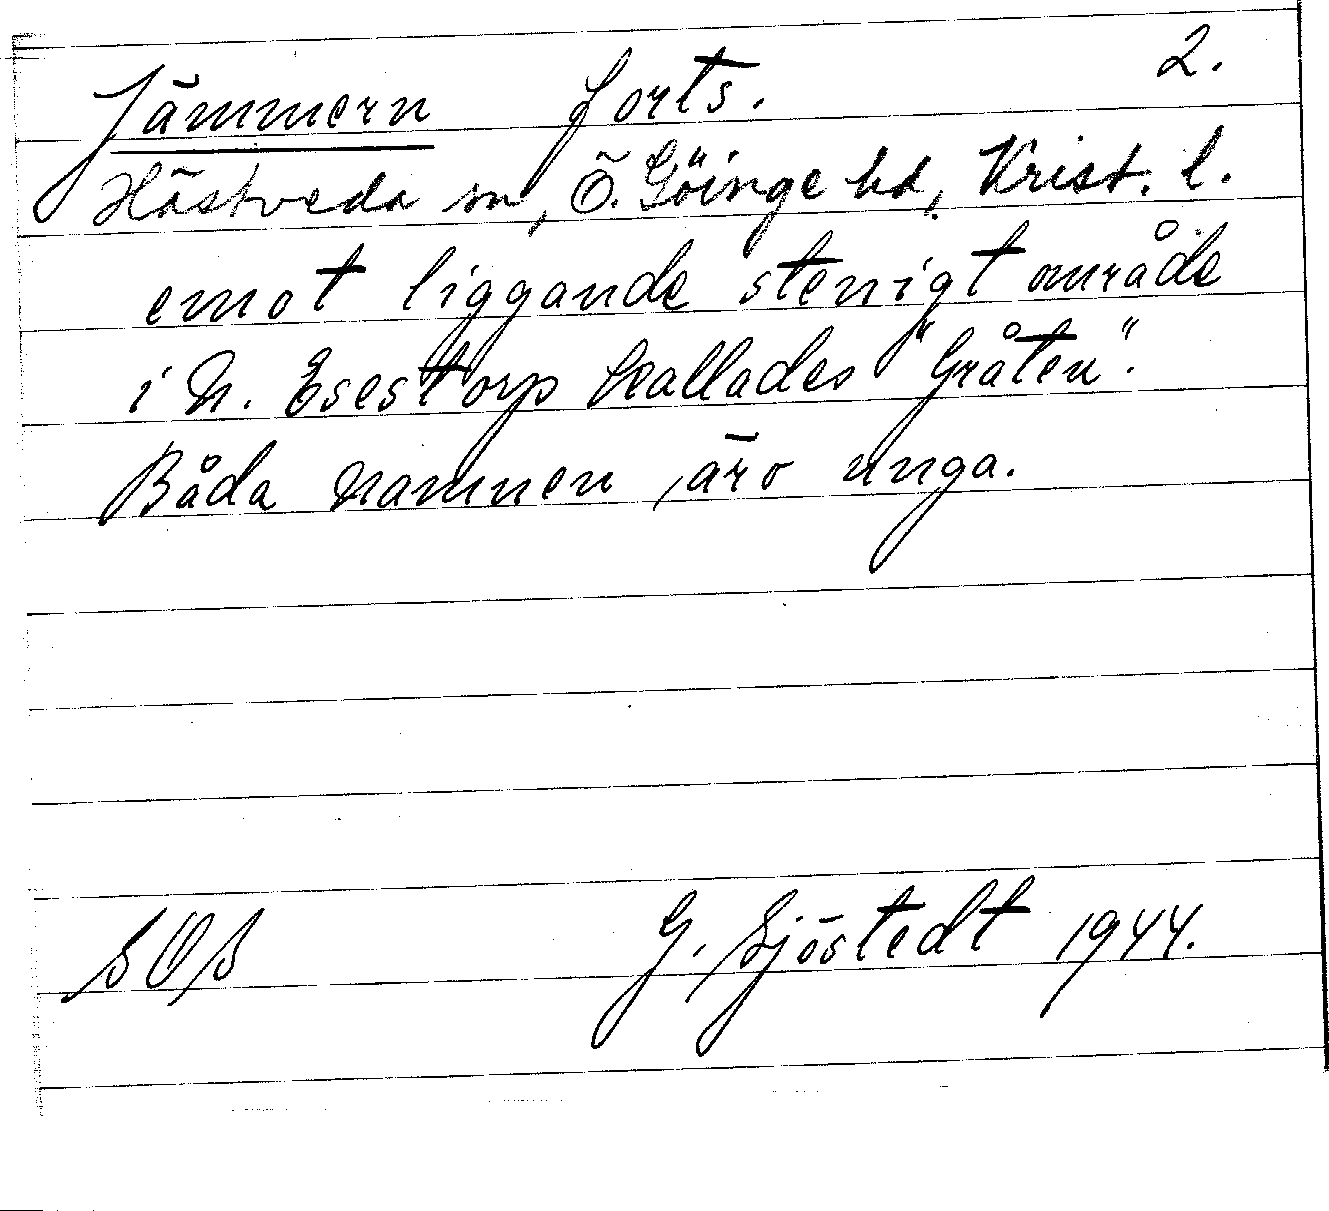 Jämmern forts. 2.
Hästveda sn, Ö. Göinge hd, Krist. l.
emot liggande stenigt område
i N. Esestorp kallades "Gråten".
Båda namnen äro unga.
SOS G. Sjöstedt 1944.